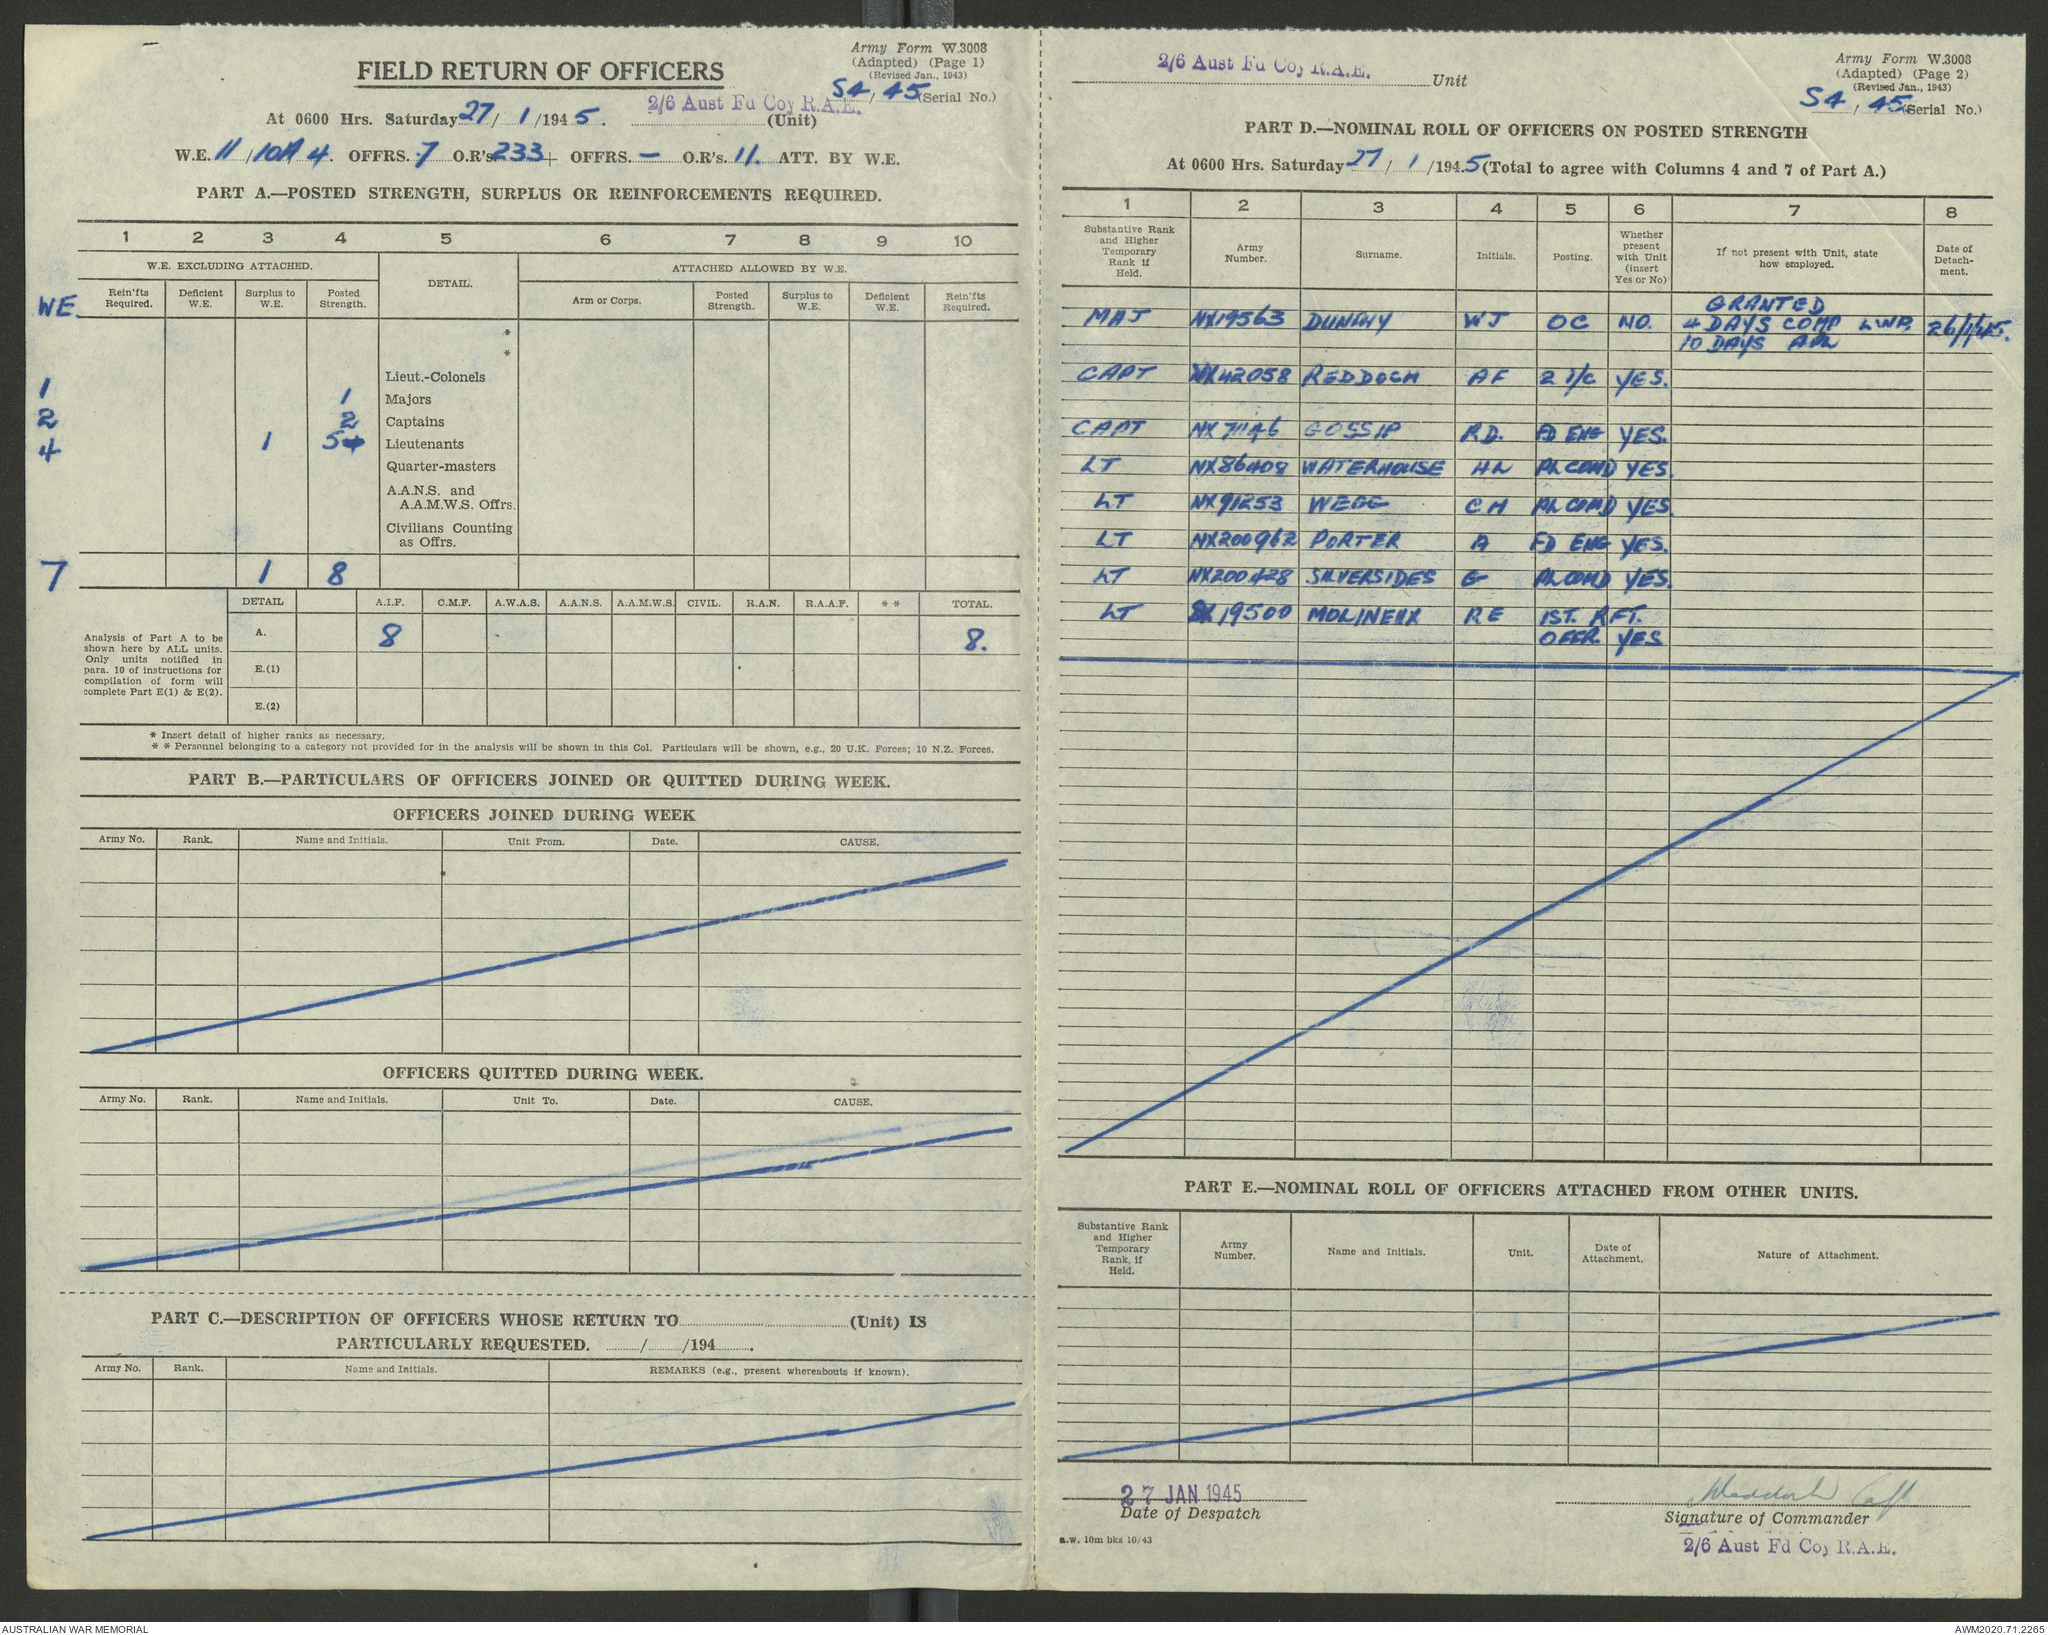 Army Form W.3008
(Adapted) (Page 1)
(Revised Jan., 1943)
FIELD RETURN OF OFFICERS
S4 / 45 (Serial No.)
2/6 Aust Fd Coy R.A.E.
At 0600 Hrs. Saturday 27/ 1 /1945. (Unit)
W.E. 11 / 10A 4. OFFRS. 7 O.R's 233 + OFFRS. — O.R's. 11. ATT. BY W.E.
PART A.—POSTED STRENGTH, SURPLUS OR REINFORCEMENTS REQUIRED.
1 2 3 4 5 6 7 8 9 10
W.E. EXCLUDING ATTACHED. DETAIL. ATTACHED ALLOWED BY W.E.
WE Rein'fts Required. Deficient W.E. Surplus to W.E. Posted Strength. Arm or Corps. Posted Strength. Surplus to W.E. Deficient W.E. Rein'fts Required.
*
*
Lieut.-Colonels
1 1 Majors
2 2 Captains
4 1 5 Lieutenants
Quarter-masters
A.A.N.S. and
A.A.M.W.S. Offrs.
Civilians Counting
as Offrs.
7 1 8
DETAIL A.I.F. C.M.F. A.W.A.S. A.A.N.S. A.A.M.W.S. CIVIL. R.A.N. R.A.A.F. * * TOTAL.
Analysis of Part A to be
shown here by ALL units.
Only units notified in
para. 10 of instructions for
compilation of form will
complete Part E(1) & E(2).
A. 8 8.
E.(1)
E.(2)
* Insert detail of higher ranks as necessary.
* * Personnel belonging to a category not provided for in the analysis will be shown in this Col. Particulars will be shown, e.g., 20 U.K. Forces; 10 N.Z. Forces.
PART B.—PARTICULARS OF OFFICERS JOINED OR QUITTED DURING WEEK.
OFFICERS JOINED DURING WEEK
Army No. Rank. Name and Initials. Unit From. Date. CAUSE.
OFFICERS QUITTED DURING WEEK.
Army No. Rank. Name and Initials. Unit To. Date. CAUSE.
PART C.—DESCRIPTION OF OFFICERS WHOSE RETURN TO (Unit) IS
PARTICULARLY REQUESTED. / /194 .
Army No. Rank. Name and Initials. REMARKS (e.g., present whereabouts if known).
Army Form W.3008
(Adapted) (Page 2)
(Revised Jan., 1943)
2/6 Aust Fd Coy R.A.E. Unit
S4 / 45 (Serial No.)
PART D.—NOMINAL ROLL OF OFFICERS ON POSTED STRENGTH
At 0600 Hrs. Saturday 27 / 1 /1945 (Total to agree with Columns 4 and 7 of Part A.)
1 2 3 4 5 6 7 8
Substantive Rank and Higher Temporary Rank if Held. Army Number. Surname. Initials. Posting. Whether present with Unit (insert Yes or No) If not present with Unit, state how employed. Date of Detach-ment.
GRANTED
MAJ NX19563 DUNPHY WJ OC NO. 4 DAYS COMP 26/1/45.
10 DAYS
CAPT NX42058 REDDOCH AF 2 i/c YES.
CAPT NX71146 GOSSIP RD. FD ENG YES.
LT NX86408 WATERHOUSE HL PL COMD YES.
LT NX91253 WEDG CH PL COMD YES.
LT NX200962 PORTER A FD ENG YES.
LT NX200428 SILVERSIDES G PL COMD YES.
LT SX19500 MOLINEUX RE 1ST. RFT.
OFFR. YES
PART E.—NOMINAL ROLL OF OFFICERS ATTACHED FROM OTHER UNITS.
Substantive Rank and Higher Temporary Rank, if Held. Army Number. Name and Initials. Unit. Date of Attachment. Nature of Attachment.
27 JAN 1945
Date of Despatch
Signature of Commander
a.w. 10m bks 10/43
2/6 Aust Fd Coy R.A.E.
AUSTRALIAN WAR MEMORIAL
AWM2020.71.2265